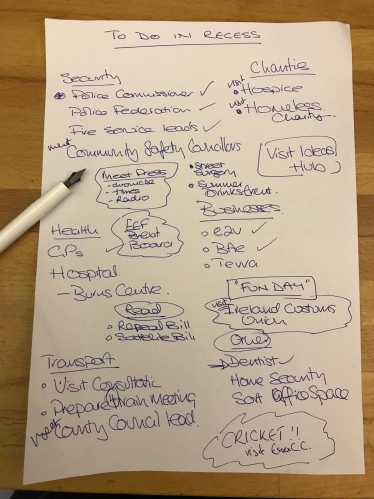 TO DO IN RECESS
Security
Police Commissioner ✓
Police Federation ✓
Fire Service leads ✓
meet Community Safety Councillors
Meet Press
- chronicle
- times
- Radio
Health
GPs ✓
Hospital
- Burns Centre.
ECF
Beat
Board
Read
Repeal Bill
Satellite Bill
Transport
Visit
Prepare train meeting
meet County Council lead.
Charities
visit Hospice
visit Homeless
Charity.
Visit Ideas
Hub
Street
Surgery
Summer
Drinks Event.
Businesses
e2v ✓
BAe ✓
Teva
"FUN DAY"
visit Ireland Customs
Union
Other
Dentist ✓
Home Security
Sort Office Space
CRICKET!!
visit C.C.